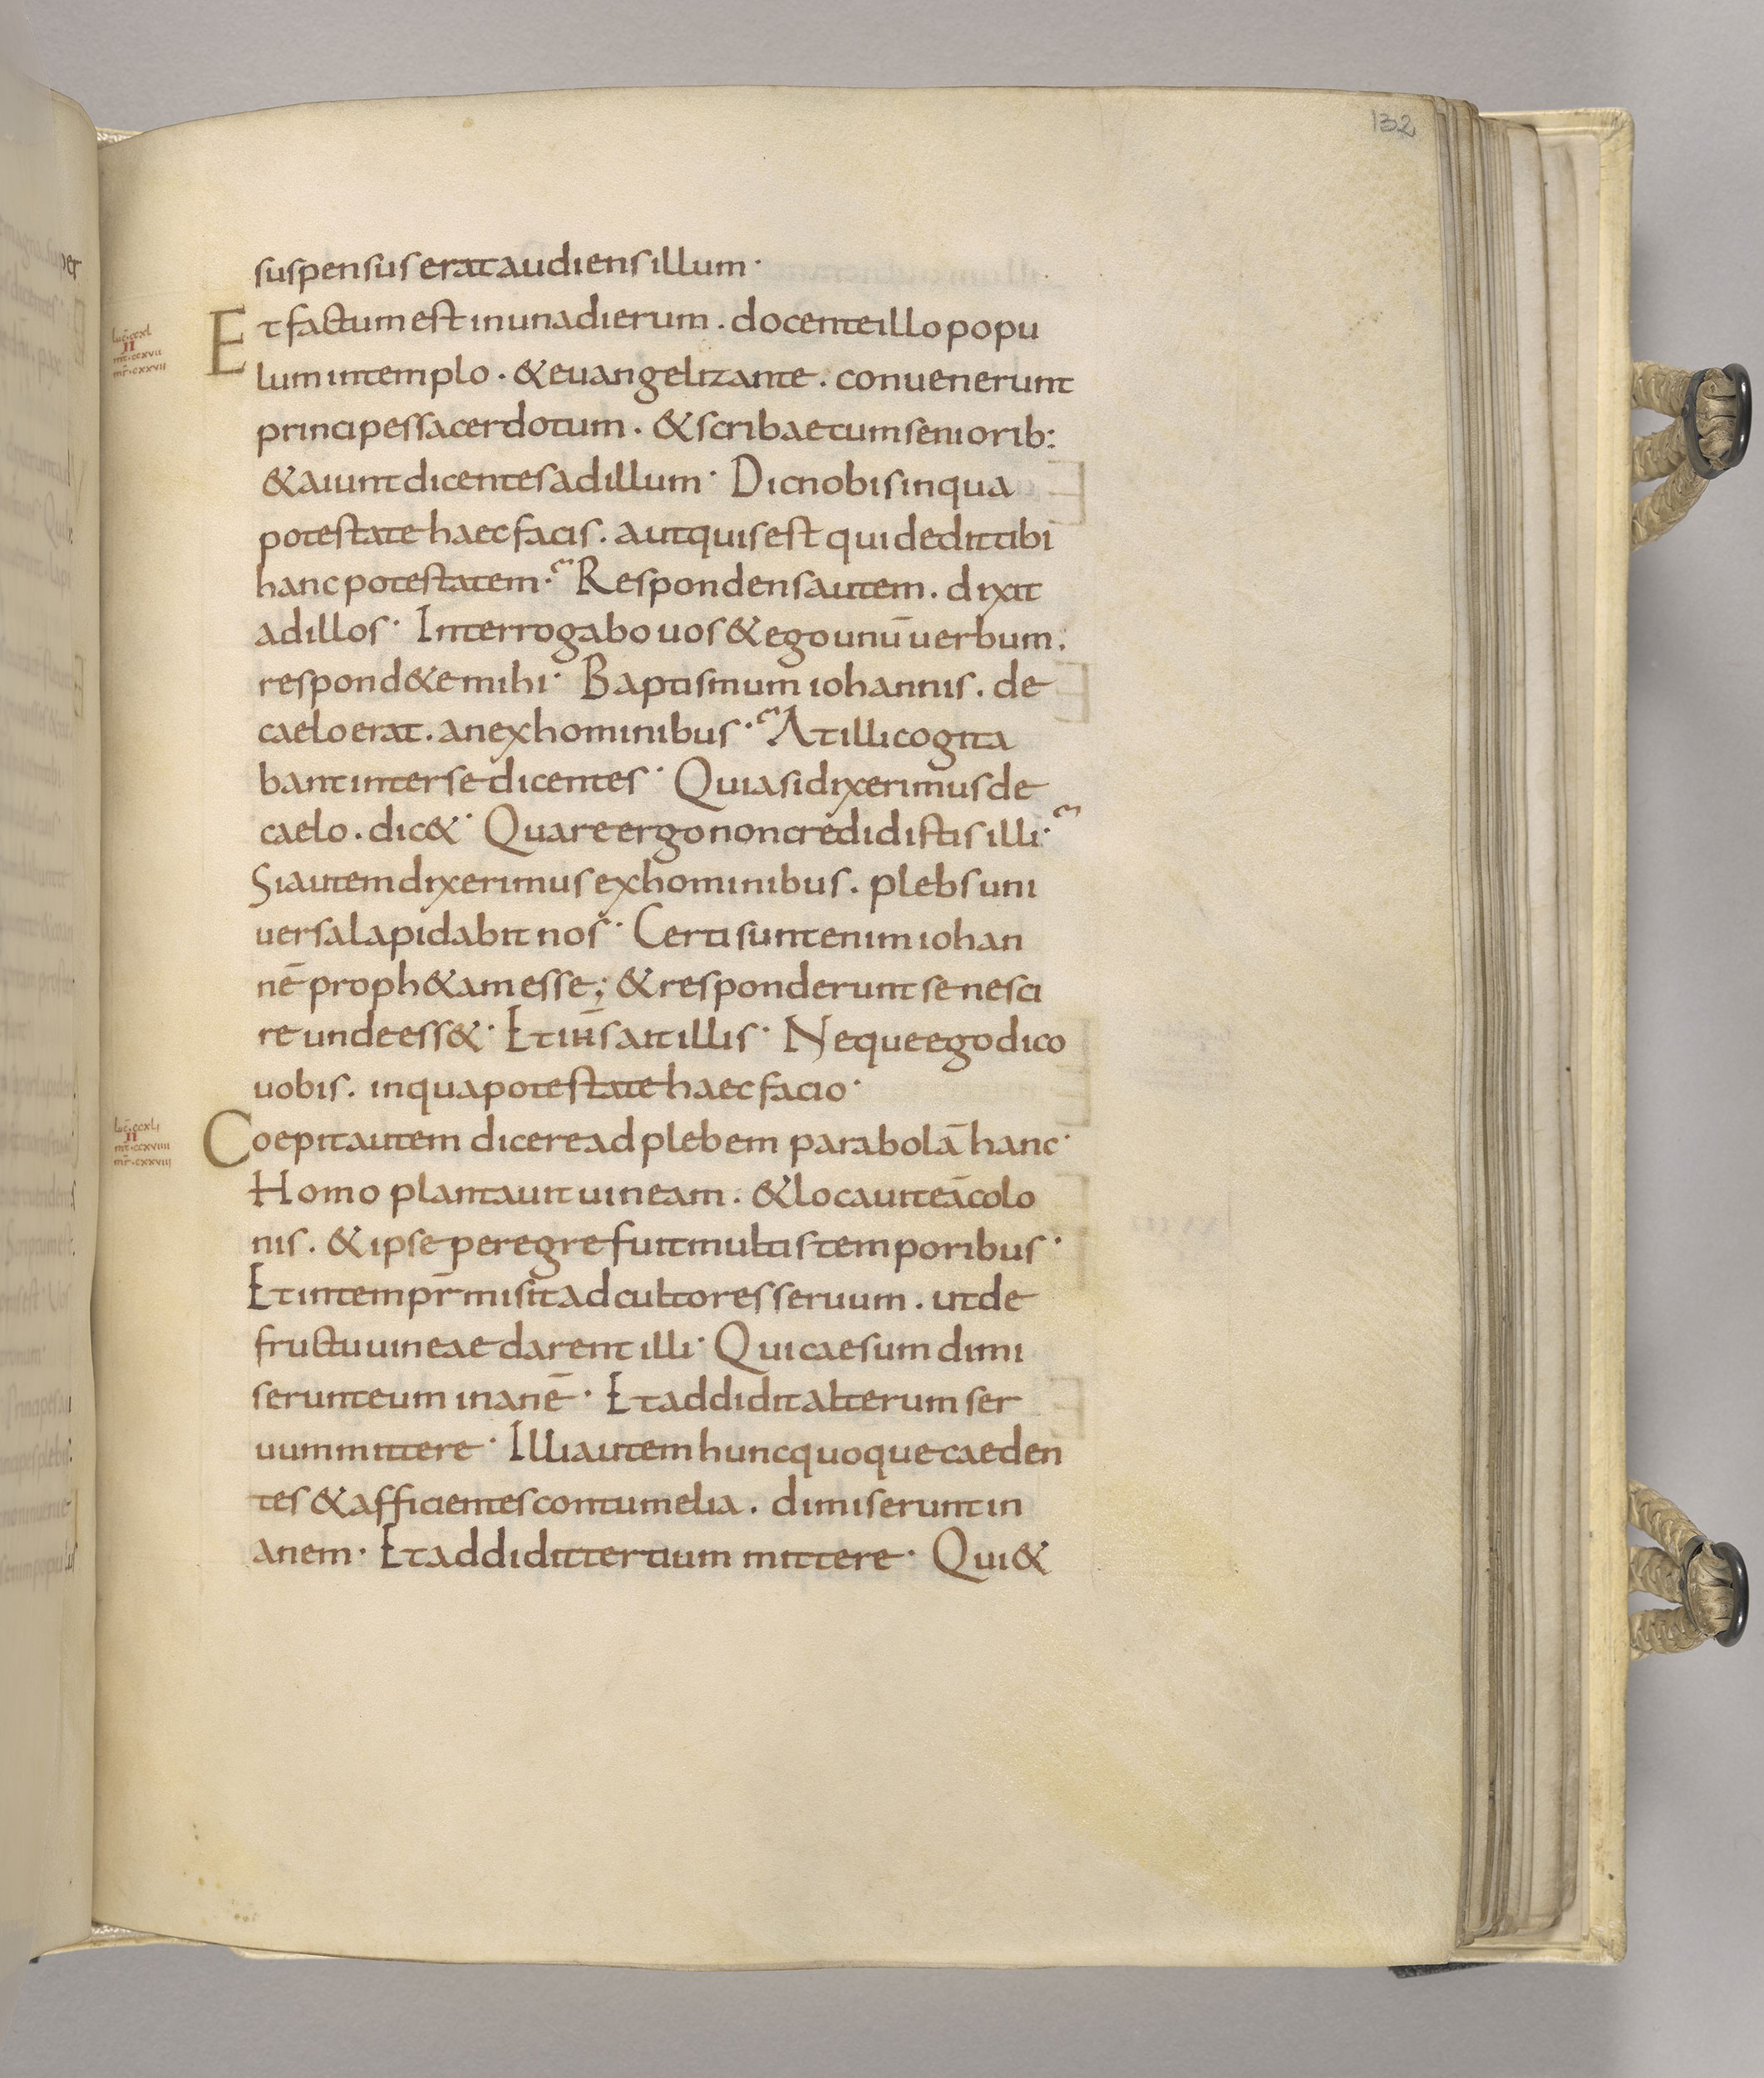 132
suspensus erat audiens illum·
Et factum est in una dierum. docente illo popu
lum in templo. & euangelizante. conuenerunt
principes sacerdotum. & scribae cum seniorib:
& aiunt dicentes ad illum· Dic nobis in qua
potestate haec facis. aut quis est qui dedit tibi
hanc potestatem· Respondens autem. dixit
ad illos· Interrogabo uos & ego unū uerbum.
respond&e mihi· Baptismum iohannis. de
caelo erat. an ex hominibus· At illi cogita
bant inter se dicentes· Quia si dixerimus de
caelo. dic&· Quare ergo non credidistis illi·
Si autem dixerimus ex hominibus. plebs uni
uersa lapidabit nos· Certi sunt enim iohan
nē proph&am esse; & responderunt se nesci
re unde ess&· Et ih̄s ait illis· Neque ego dico
uobis. in qua potestate haec facio·
luc̄.ccxli
II
mt̄.ccxviiii
mr̄.cxxviii
Coepit autem dicere ad plebem parabolā hanc·
Homo plantauit uineam. & locauit eā colo
nis. & ipse peregre fuit multis temporibus·
Et in tempr̄ misit ad cultores seruum. ut de
fructu uineae darent illi· Qui caesum dimi
serunt eum inanē· Et addidit alterum ser
uum mittere· Illi autem hunc quoque caeden
tes & afficientes contumelia. dimiserunt in
anem· Et addidit tertium mittere· Qui &
luc̄.ccxl
II
mt̄.ccxvii
mr̄.cxxvii